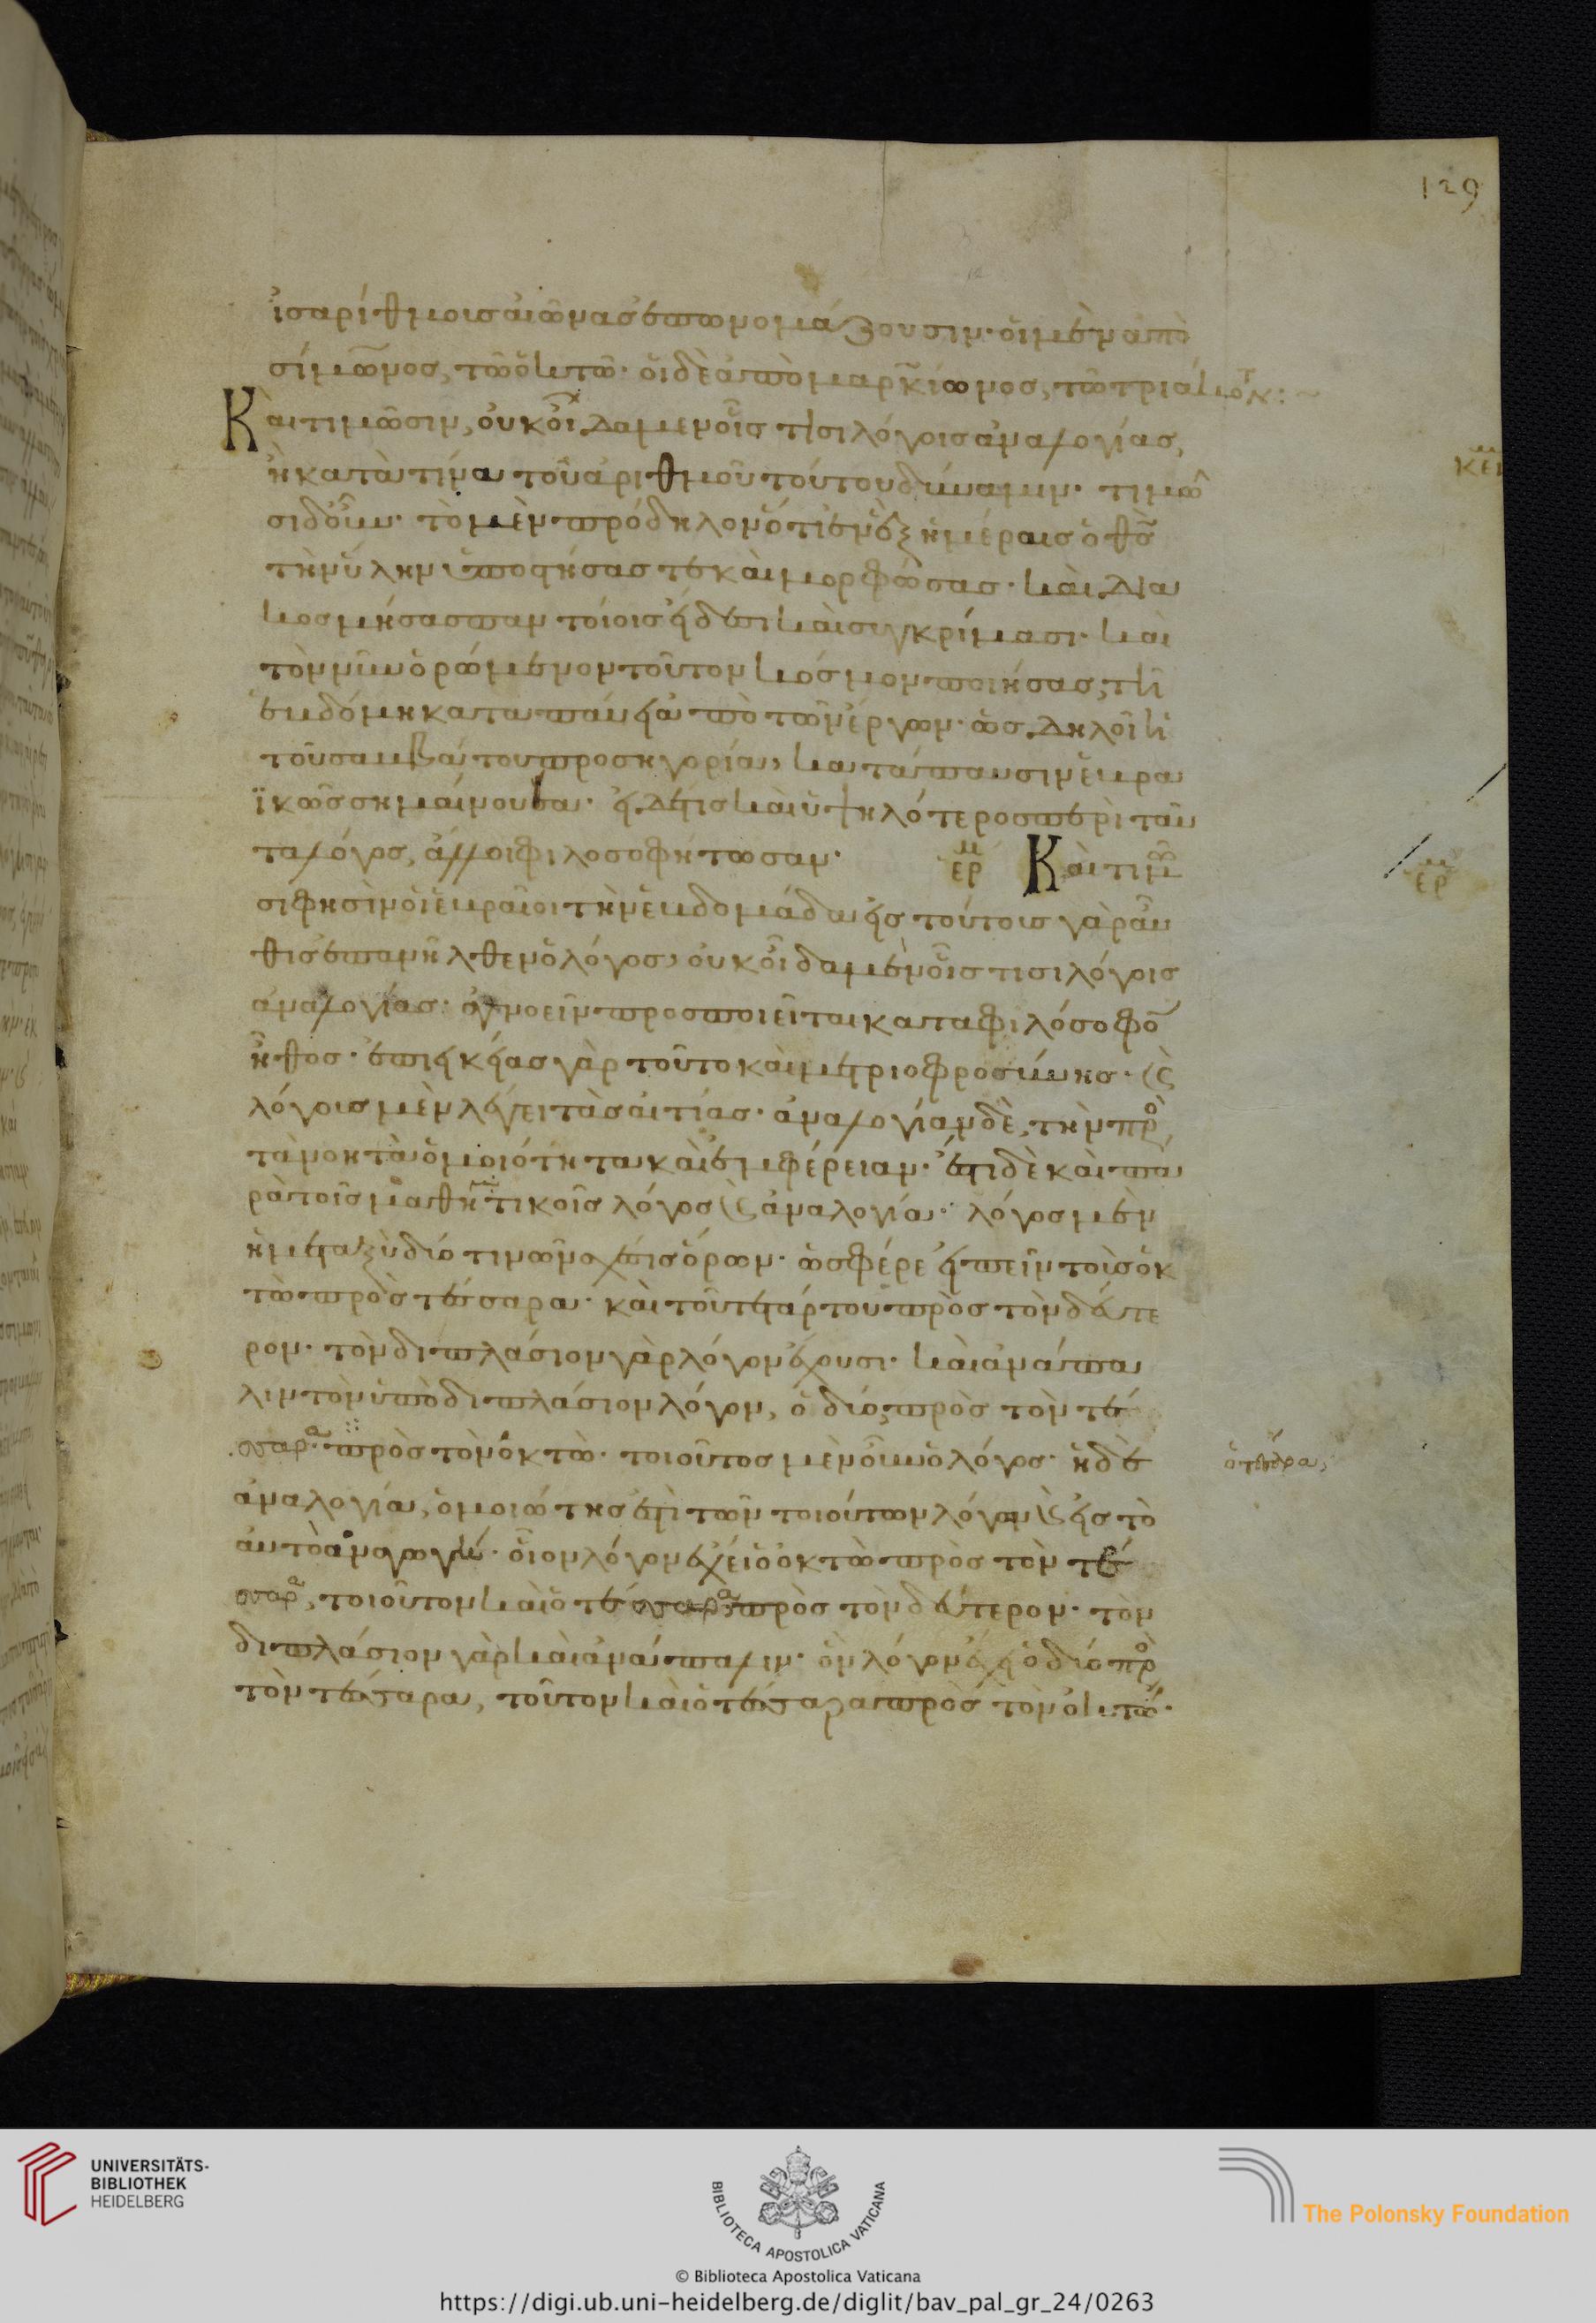 129
ἰσαρίθμοισ αἰῶνασ ἐπονομάζουσιν· οἱ μὲν ἀπὸ
σίμωνοσ, τῶ ὀκτώ· οἱ δὲ ἀπὸ μαρκίωνοσ, τῶ τριάκοντ :~
Καὶ τιμῶσιν, οὐκ οἶδα μὲν οἷς τισὶ λόγοισ ἀναλογίασ,
ἢ κατὰ τίνα τοῦ ἀριθμοῦ τούτου δύναμιν· τιμῶ
σι δ' οὖν· τὸ μὲν πρόδηλον, ὅτι ἐν ἓξ ἡμέραισ ὁ θσ
τὴν ὕλην ὑποστήσασ τε καὶ μορφώσασ· καὶ δια
κοσμήσασ παντοίοισ εἴδεσι καὶ συγκρίμασι· καὶ
τὸν νῦν ὁρώμενον τοῦτον κόσμον ποιήσασ, τῆ
ἑβδόμη καταπαύει ἀπὸ τῶν ἔργων· ὡσ δηλοῖ ἡ
τοῦ σαββάτου προσηγορία, κατάπαυσιν ἑβρα
ϊκῶσ σημαίνουσα· εἰ δέ τισ καὶ ὑψηλότεροσ περὶ ταῦ
τα λόγοσ, ἄλλοι φιλοσοφήτωσαν· ἑρμ Καὶ τιμῶ
σι φησὶν οἱ ἑβραῖοι τὴν ἑβδομάδα, εἰσ τούτουσ γὰρ αὖ
θισ ἐπανῆλθεν ὁ λόγοσ, οὐκ οἶδα μὲν οἷς τισι λόγοισ
ἀναλογίασ· ἀγνοεῖν προσποιεῖται κατὰ φιλόσοφον
ἦθοσ· ἐπιεικείασ γὰρ τοῦτο καὶ μετριοφροσύνησ· καὶ
λόγουσ μὲν λέγει τὰσ αἰτίασ· ἀναλογίαν δὲ, τὴν πρὸ
τὰ νοητὰ ὁμοιότητα καὶ ἐμφέρειαν· ἔστι δὲ καὶ πα
ρὰ τοῖσ μαθηματικοῖσ λόγοσ καὶ ἀναλογία· λόγοσ μὲν
ἡ μεταξὺ δύο τινῶν σχέσισ ὅρων· ὡσ φέρε εἰπεῖν τοῖσ ὀκ
τὼ πρὸσ τέσσαρα· καὶ τοῦ τετάρτου πρὸσ τὸν δεύτε
ρον· τὸν διπλάσιον γὰρ λόγον ἔχουσι· καὶ ἀνάπα
λιν τὸν ὑποδιπλάσιον λόγον, ὁ δύο πρὸσ τὸν τέ
σσαρα· πρὸσ τὸν ὀκτώ· τοιοῦτοσ μὲν οὖν ὁ λόγοσ· ἡ δὲ
ὁ τέσσαρα,
ἀναλογία, ὁμοιότησ ἐστὶ τῶν τοιούτων λόγων καὶ εἰσ τὸ
αὐτὸ ἀναγωγή· οἷον λόγον ἔχει ὁ ὀκτὼ πρὸσ τὸν τέ
σσαρα, τοιοῦτον καὶ ὁ τέσσαρα πρὸσ τὸν δεύτερον· τὸν
διπλάσιον γὰρ καὶ ἀνάπαλιν· ὃν λόγον ἔχει ὁ δύο πρὸ
τὸν τέσσαρα, τοῦτον καὶ ὁ τέσσαρα πρὸσ τὸν ὀκτώ·
κεί
ἑρμ
UNIVERSITÄTS-
BIBLIOTHEK
HEIDELBERG
BIBLIOTECA APOSTOLICA VATICANA
The Polonsky Foundation
© Biblioteca Apostolica Vaticana
https://digi.ub.uni-heidelberg.de/diglit/bav_pal_gr_24/0263